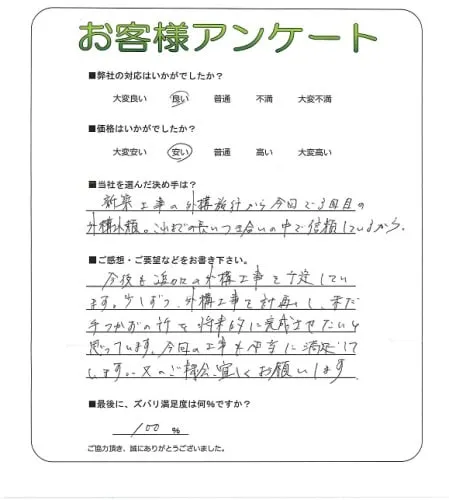 お客様アンケート
■弊社の対応はいかがでしたか？
大変良い 良い 普通 不満 大変不満
■価格はいかがでしたか？
大変安い 安い 普通 高い 大変高い
■当社を選んだ決め手は？
新築工事の外構施行から今回で3回目の
外構依頼。これまでの長いつき合いの中で信頼しているから。
■ご感想・ご要望などをお書き下さい。
今後も追加の外構工事を予定してい
ます。少しずつ、外構工事を計画し、まだ
手つかずの所を将来的に完成させたいと
思っています。今回の工事も非常に満足して
します。又のご機会、宜しくお願いします
■最後に、ズバリ満足度は何%ですか？
100 %
ご協力頂き、誠にありがとうございました。